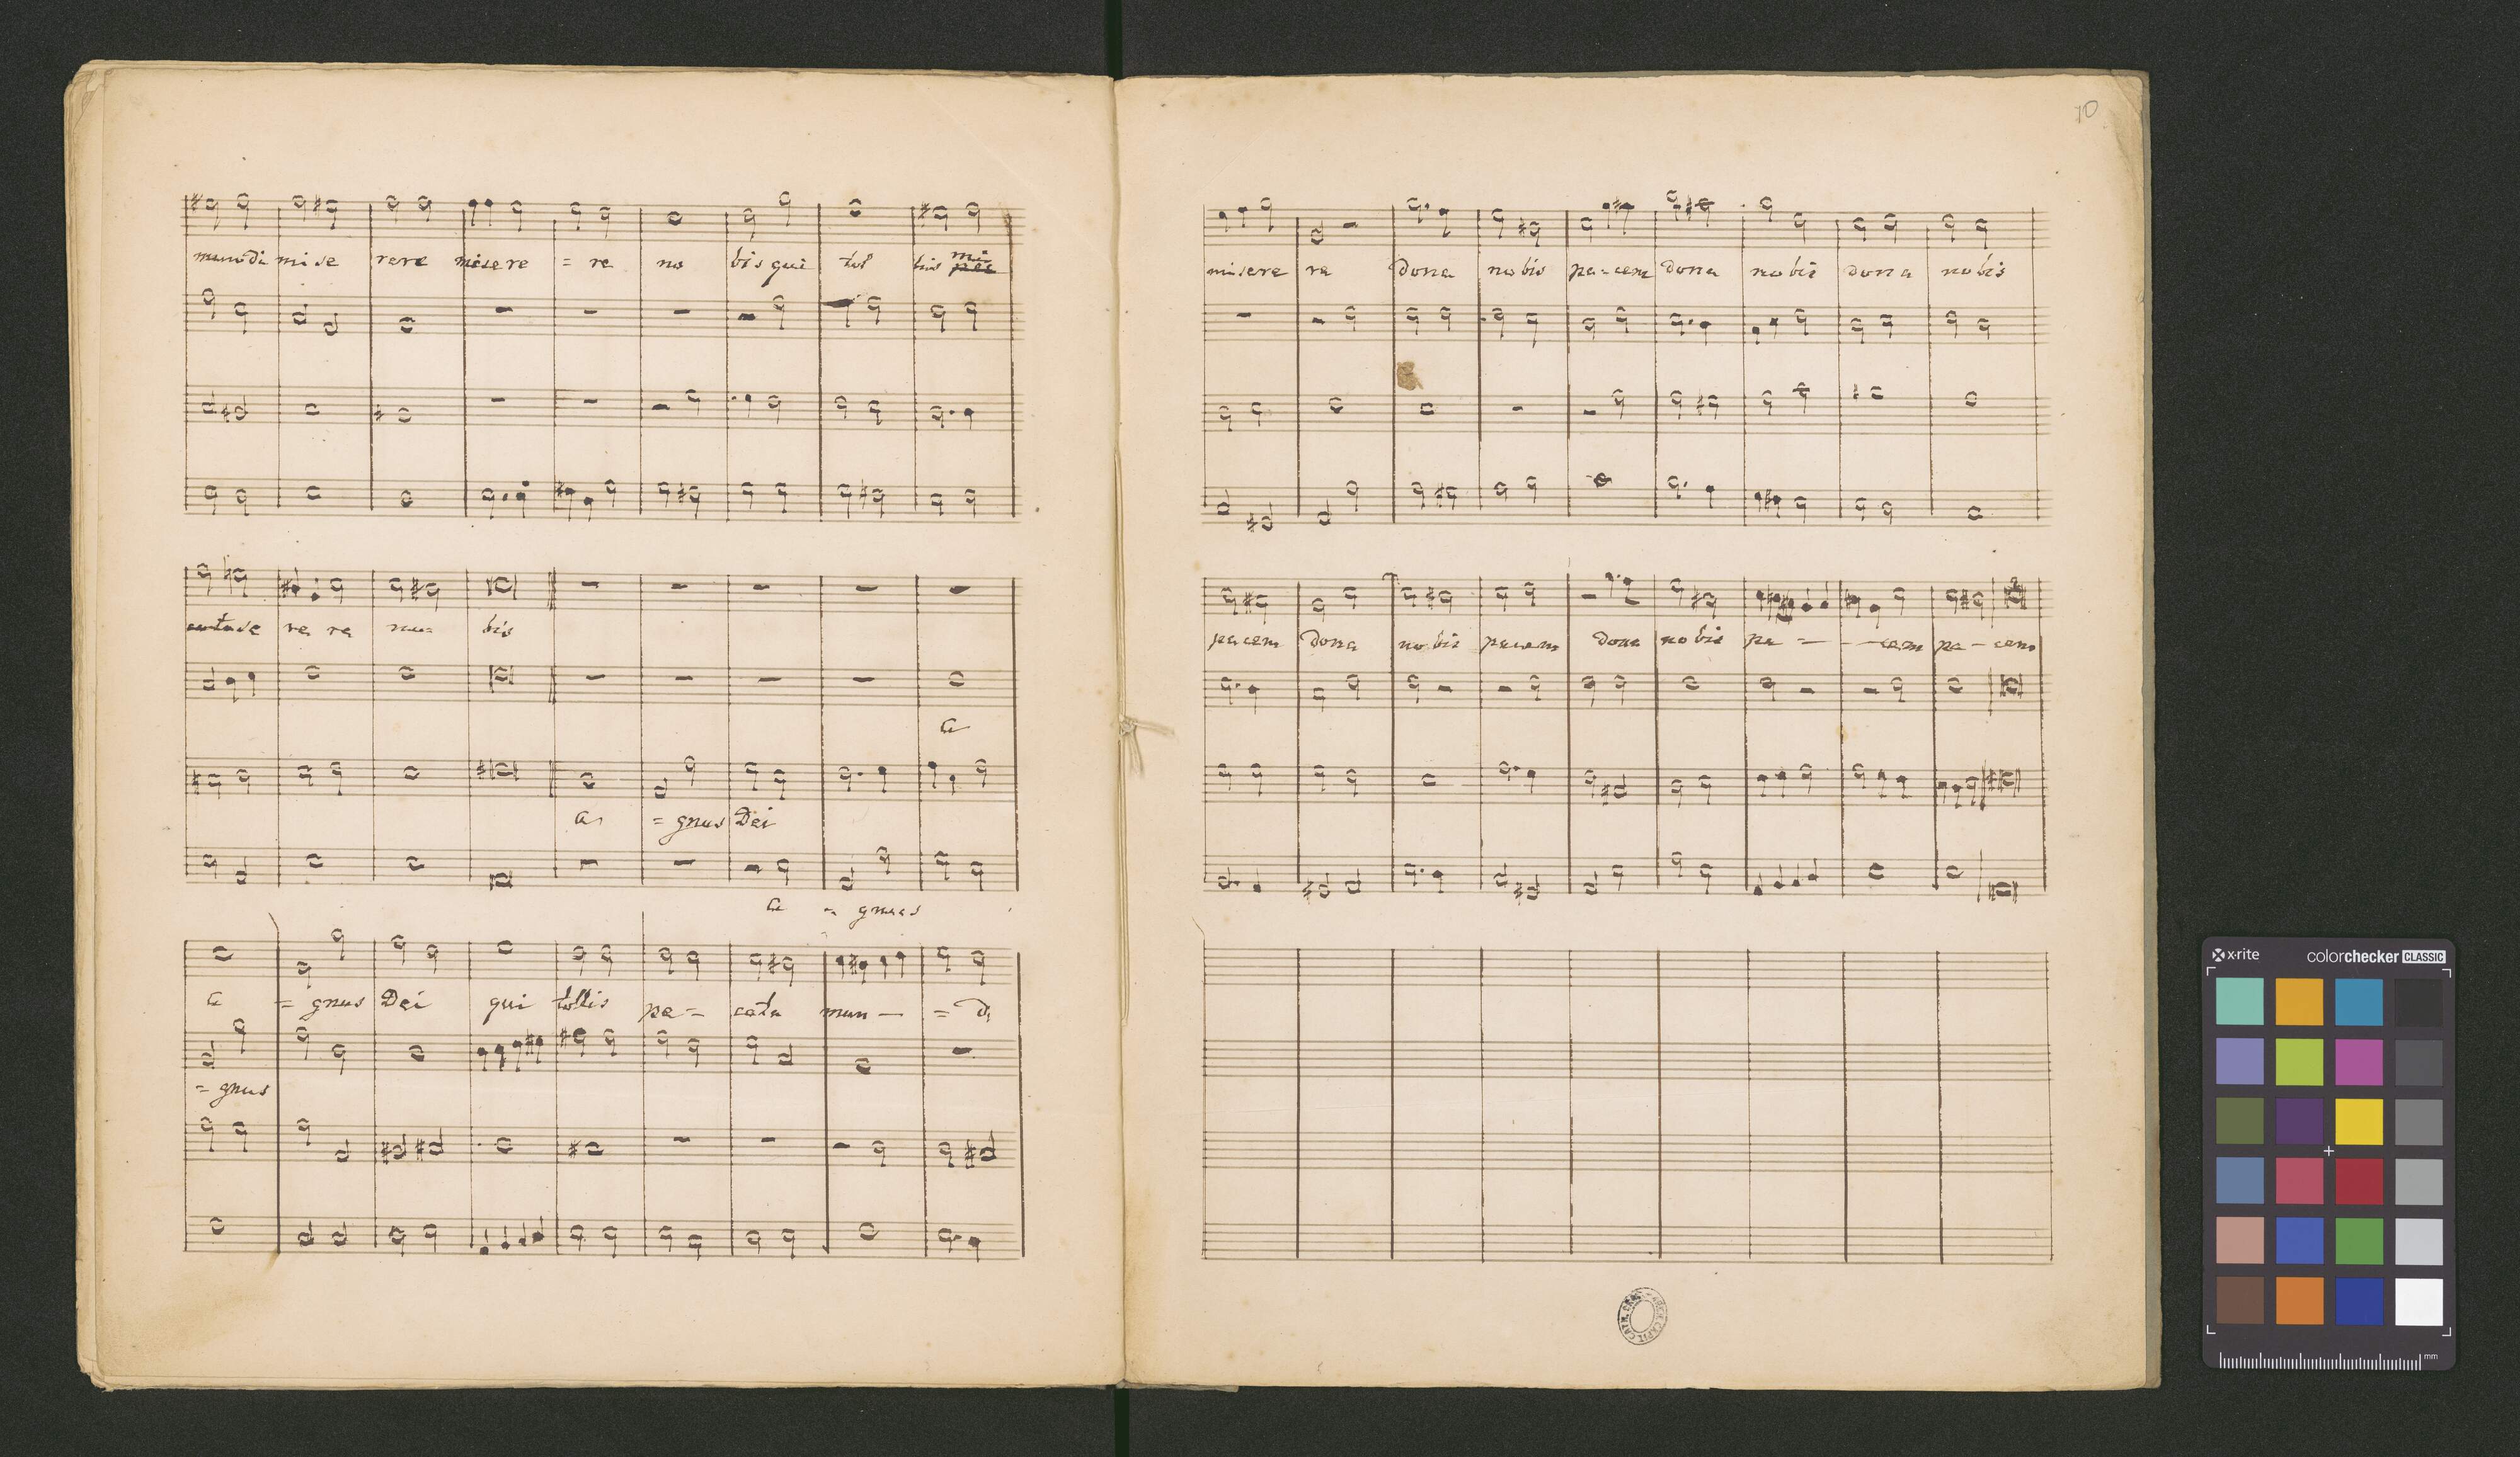 mundi mise rere misere = re no bis qui tol lis mi pec
cata se re re no= bis
a
a = gnus Dei
a = gnus
a = gnus Dei qui tollis pe = cata mun — = di
= gnus
10
misere re Dona nobis pa = cem Dona nobis dona nobis
pacem Dona nobis pacem Dona nobis pa = — — cem pa — cem
x-rite
colorchecker CLASSIC
mm